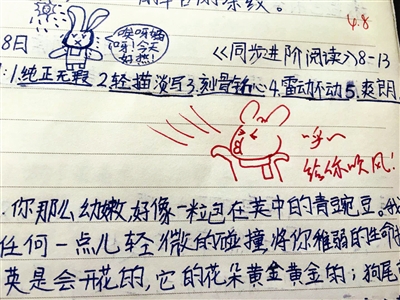 4.8
8日
唉呀妈
呀!今天
好热!
《同步进阶阅读》8-13
:1.纯正无瑕 2.轻描淡写3.刻骨铭心4.雷动不动5.爽朗
呼~
给你吹风!
你那么幼嫩,好像一粒包在荚中的青豌豆。我
任何一点儿轻微的碰撞,将你稚弱的生命
英是会开花的,它的花朵黄金黄金的;狗尾